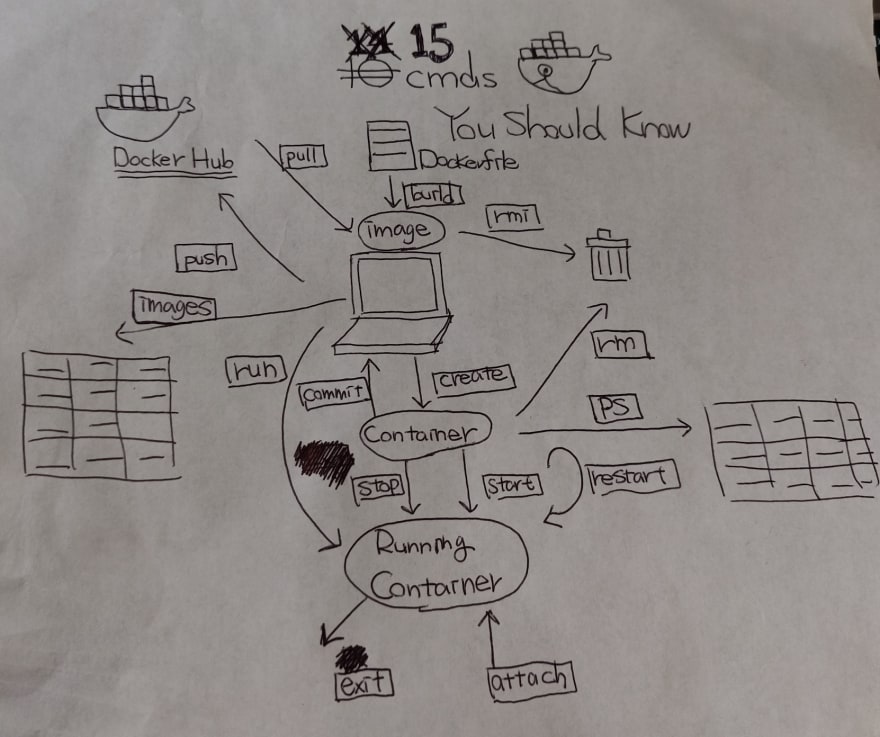 15
cmds
You Should Know
Docker Hub
pull
Dockerfile
build
image
rmi
push
images
rm
run
commit
create
ps
Container
stop
start
restart
Running
Container
exit
attach